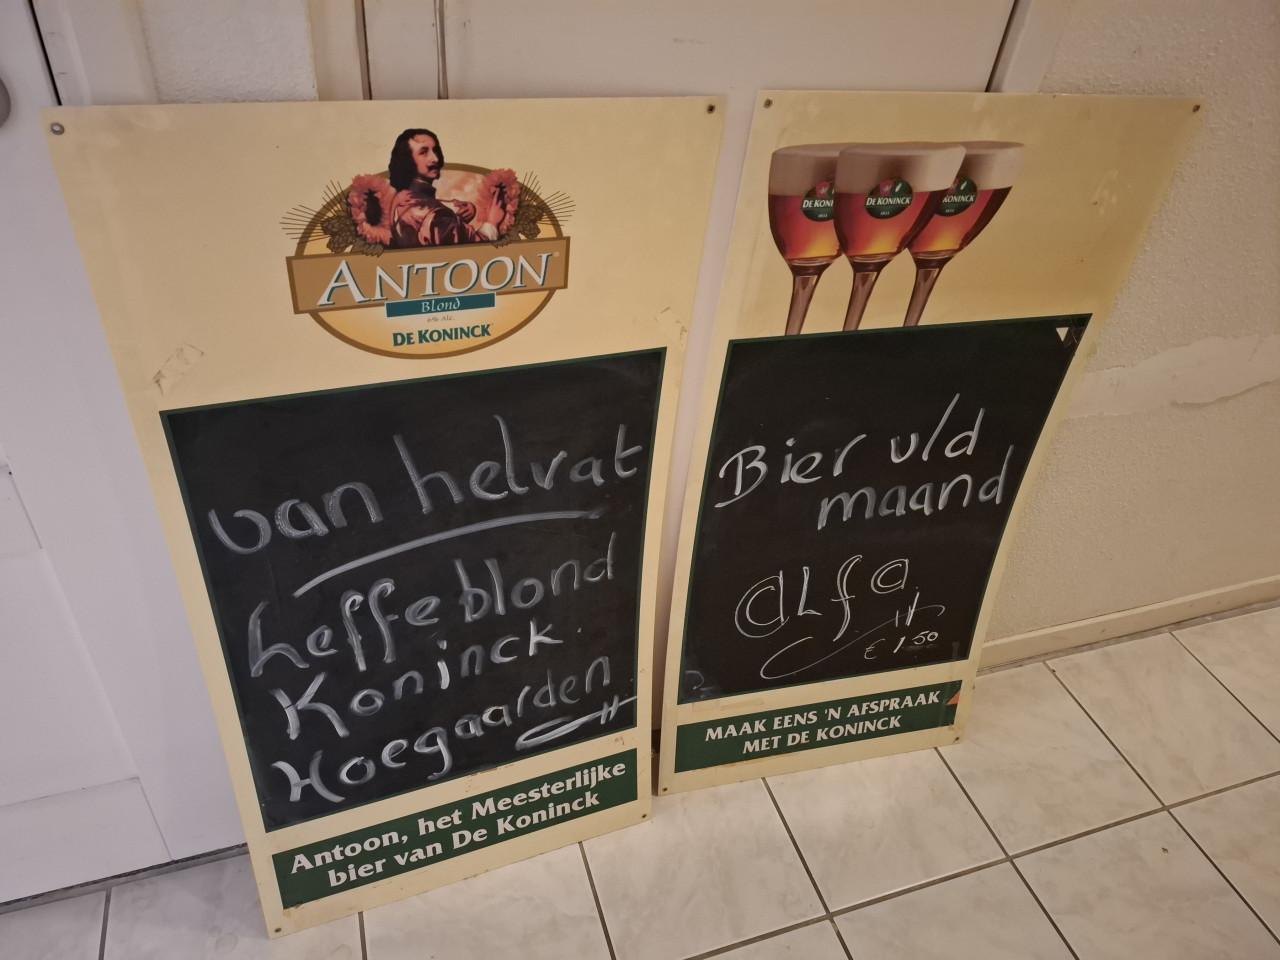 ANTOON
Blond
6% Alc.
DE KONINCK
van helvat
Leffe blond
Koninck.
Hoegaarden
Antoon, het Meesterlijke
bier van De Koninck
DE KONINCK
DE KONINCK
KONINCK
Bier v/d
maand
aLfa
€ 1.50
MAAK EENS 'N AFSPRAAK
MET DE KONINCK